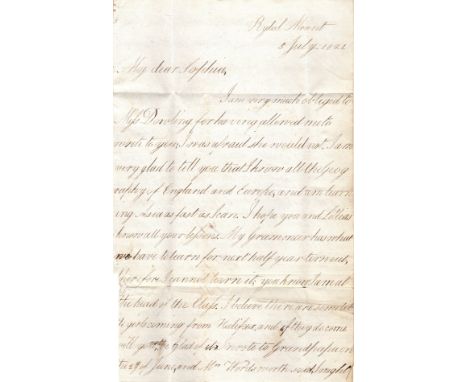 Rydal Mount
July
My dear Sophia,
I am very much obliged to
Miss Dowling for having allowed me to
write to you, I was afraid she would not. I am
very glad to tell you that I know all the geog
raphy of England and Europe, and am learn
ing Asia as fast as I can. I hope you and
know all your lessons. My Grammar has what
we have to learn for next half year torn out,
therefore I cannot learn it, you know I am at
the head of the Class. I believe there are some
girls coming from Halifax, and if they do come
glad of wrote to Grandpapa on
the of June, and Mrs Wordsworth said I might